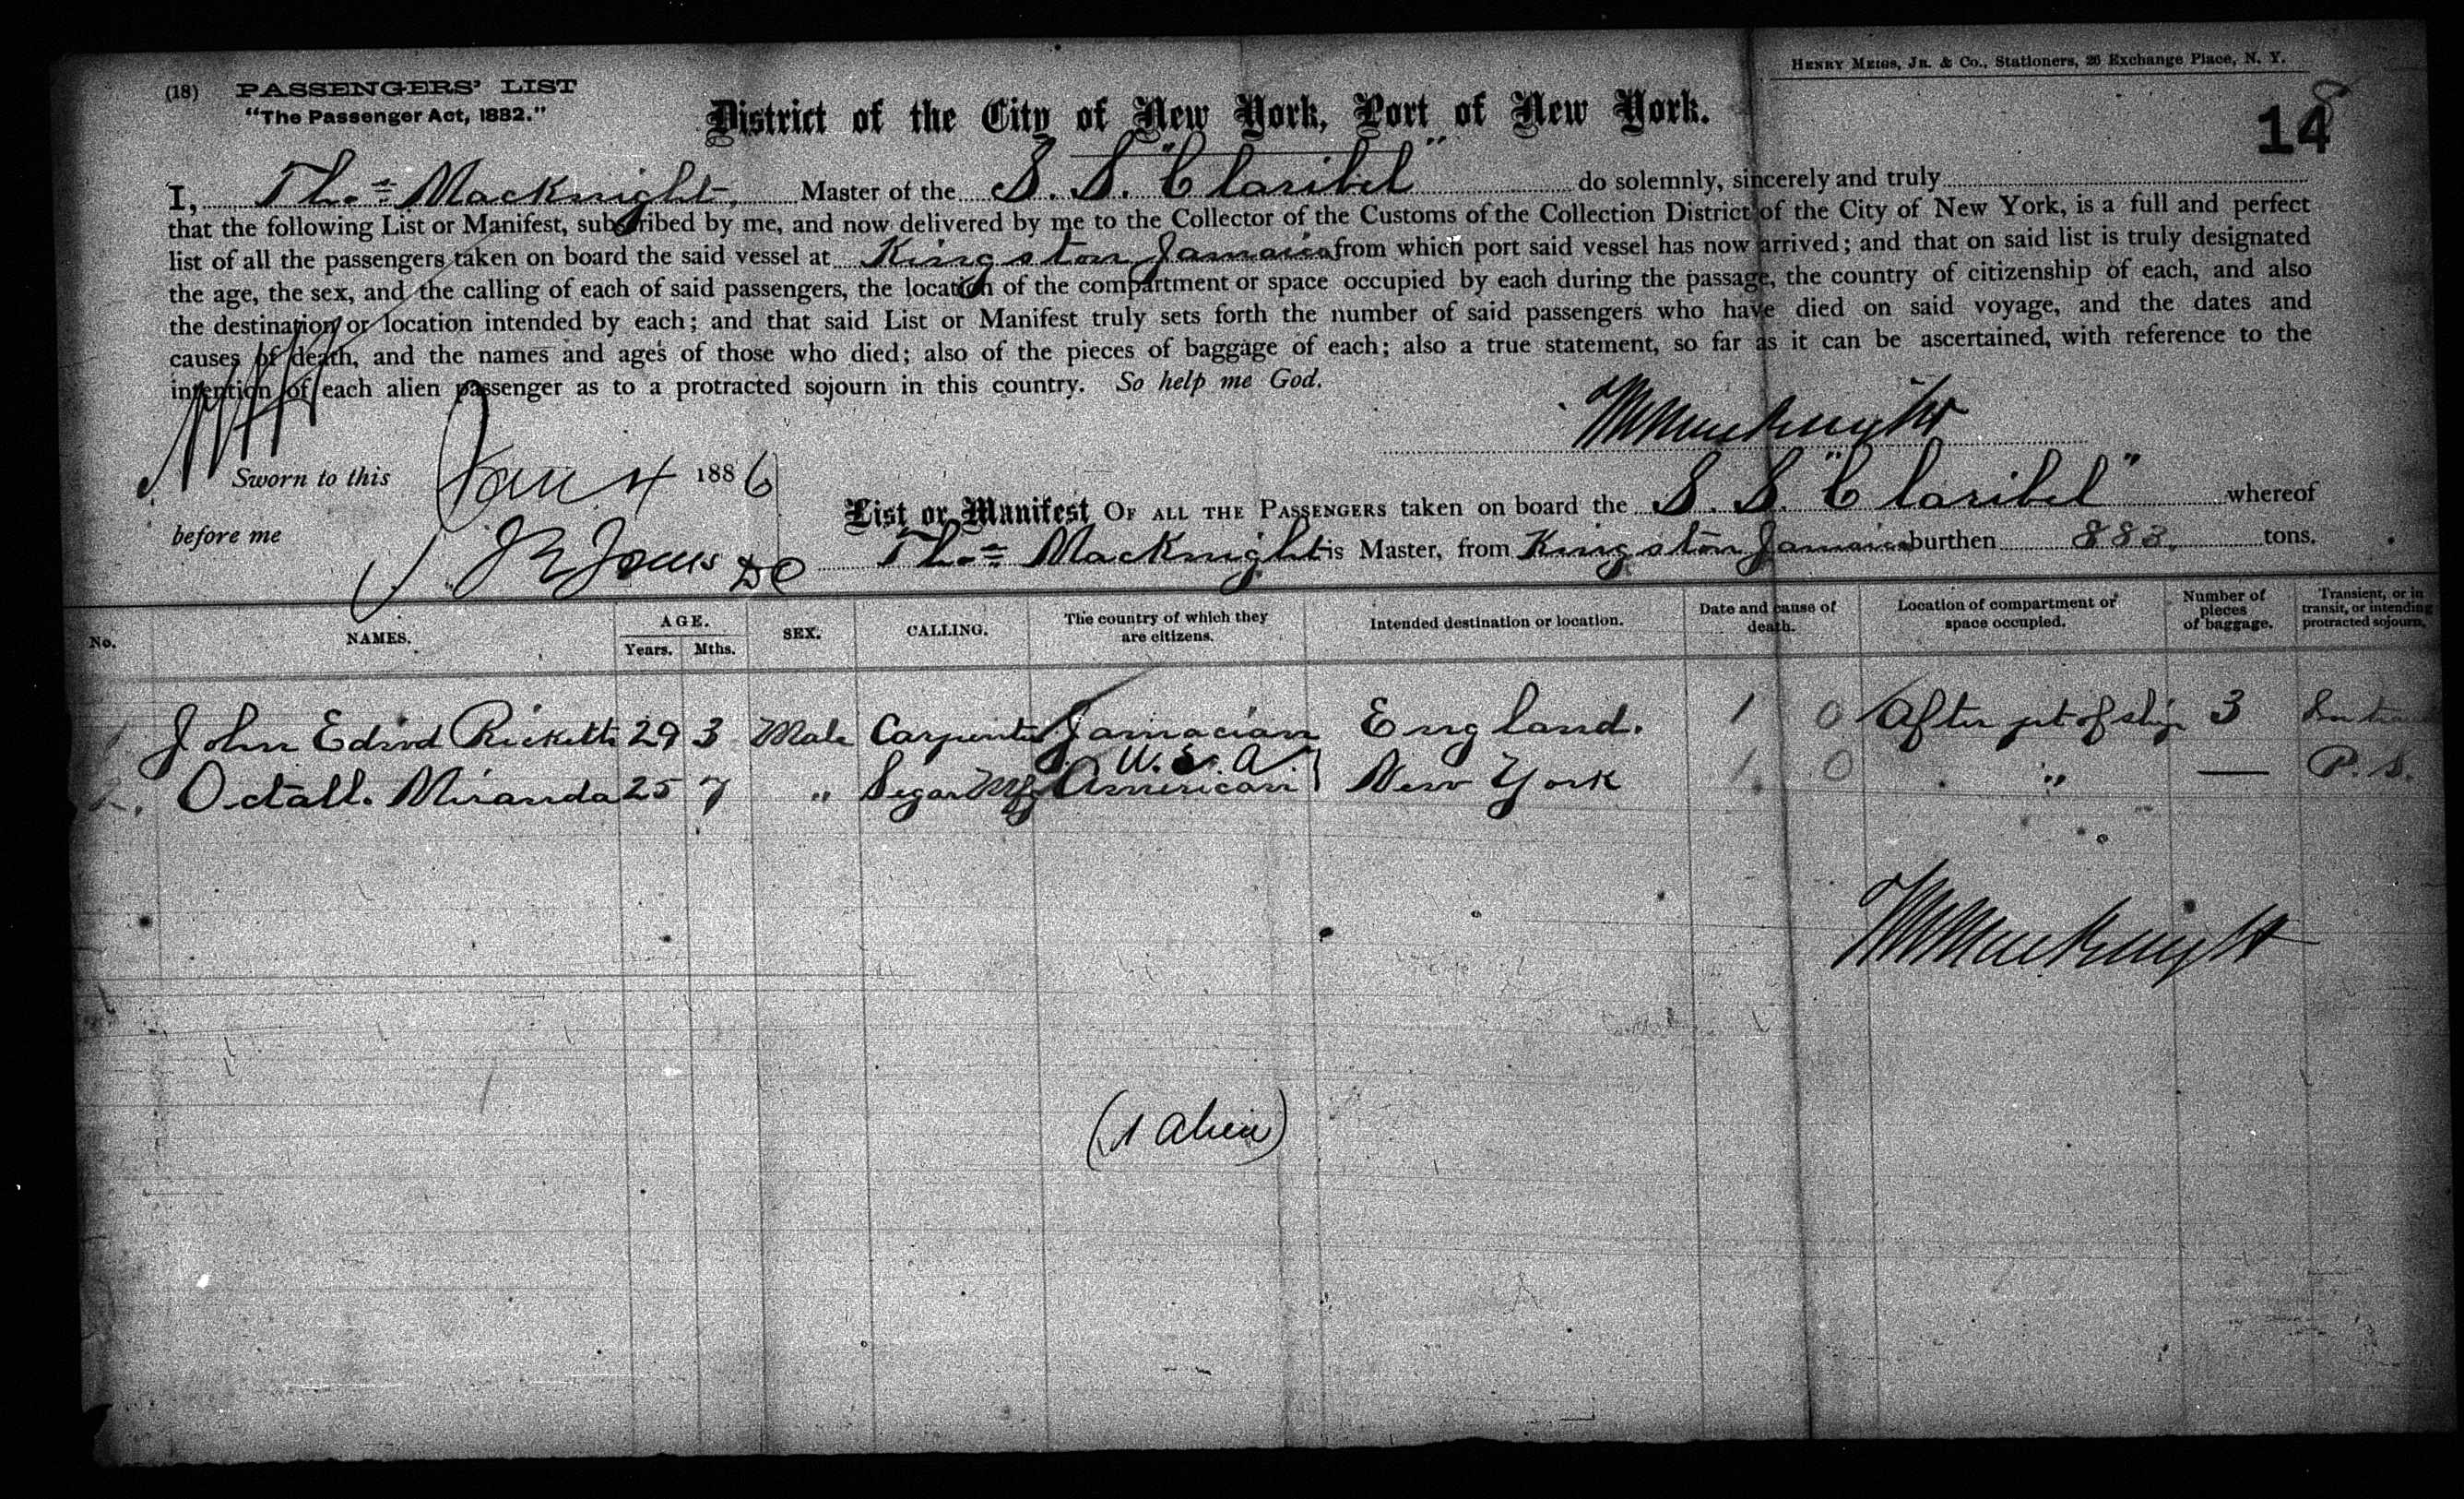 HENRY MEIGS, JR. & Co., Stationers, 26 Exchange Place, N. Y.
(18) PASSENGERS' LIST
"The Passenger Act, 1882."
District of the City of New York, Port of New York.
14
I, Thos. Macknight, Master of the S. S. "Claribel" do solemnly, sincerely and truly
that the following List or Manifest, subscribed by me, and now delivered by me to the Collector of the Customs of the Collection District of the City of New York, is a full and perfect
list of all the passengers taken on board the said vessel at Kingston Jamaica from which port said vessel has now arrived; and that on said list is truly designated
the age, the sex, and the calling of each of said passengers, the location of the compartment or space occupied by each during the passage, the country of citizenship of each, and also
the destination or location intended by each; and that said List or Manifest truly sets forth the number of said passengers who have died on said voyage, and the dates and
causes of death, and the names and ages of those who died; also of the pieces of baggage of each; also a true statement, so far as it can be ascertained, with reference to the
intention of each alien passenger as to a protracted sojourn in this country. So help me God.
Macknight
Sworn to this Jan 4 1886
before me
List or Manifest OF ALL THE PASSENGERS taken on board the S. S. "Claribel" whereof
Thos. Macknight is Master, from Kingston Jamaica burthen 883 tons.
No. NAMES. AGE. Years. Mths. SEX. CALLING. The country of which they are citizens. Intended destination or location. Date and cause of death. Location of compartment or space occupied. Number of pieces of baggage. Transient, or in transit, or intending protracted sojourn.
1 John Edwd Ricketts 29 3 Male Carpenter Jamacian England. 1 0 After pt of ship 3 In transit
U. S. A
2. Octall. Miranda 25 7 " Segar Mfg American New York 1 0 " — P. S.
Macknight
(1 Alien)